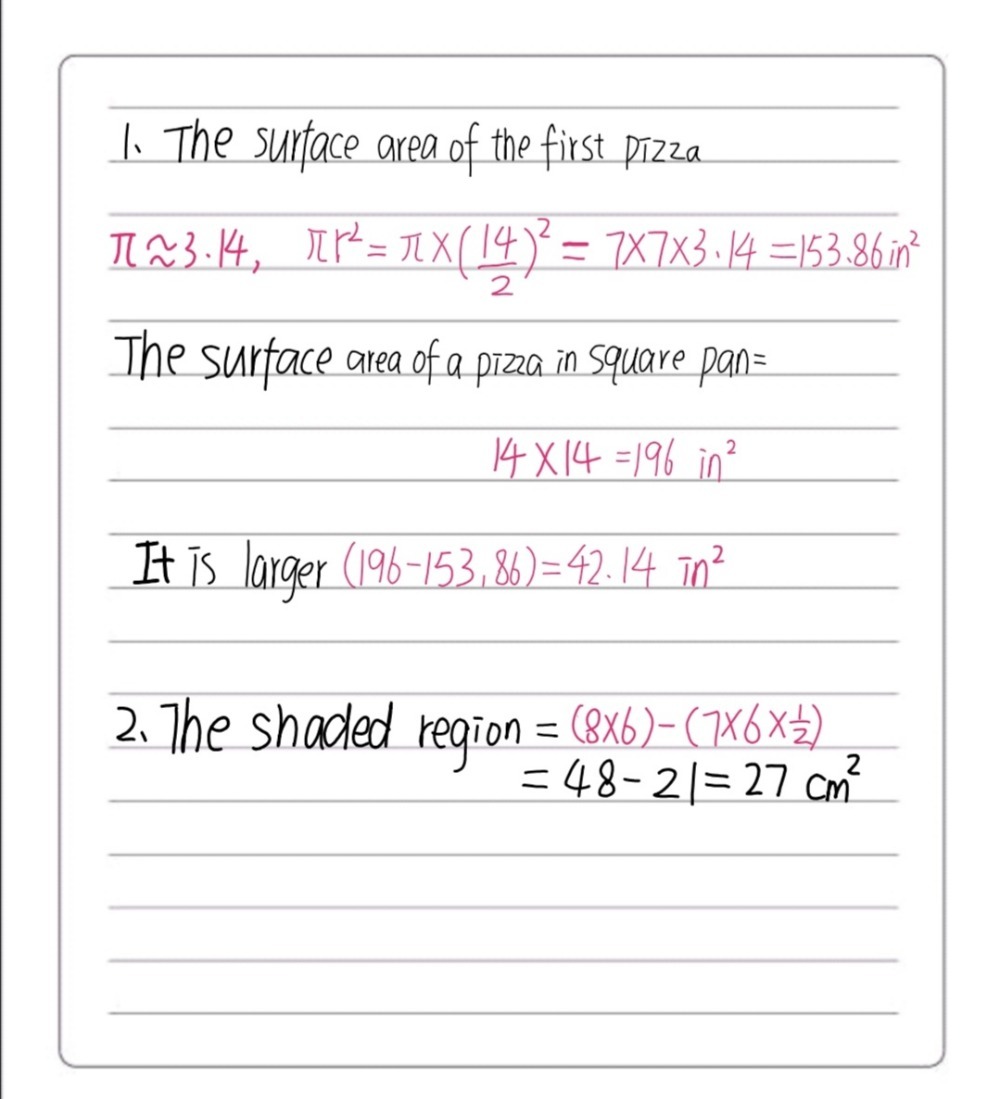 1. The surface area of the first pizza
π≈3.14, πr²= π×(14/2)² = 7×7×3.14 =153.86in²
The surface area of a pizza in square pan=
14×14 =196 in²
It is larger (196-153.86)=42.14 in²
2. The shaded region = (8×6)-(7×6×½)
= 48-21=27 cm²